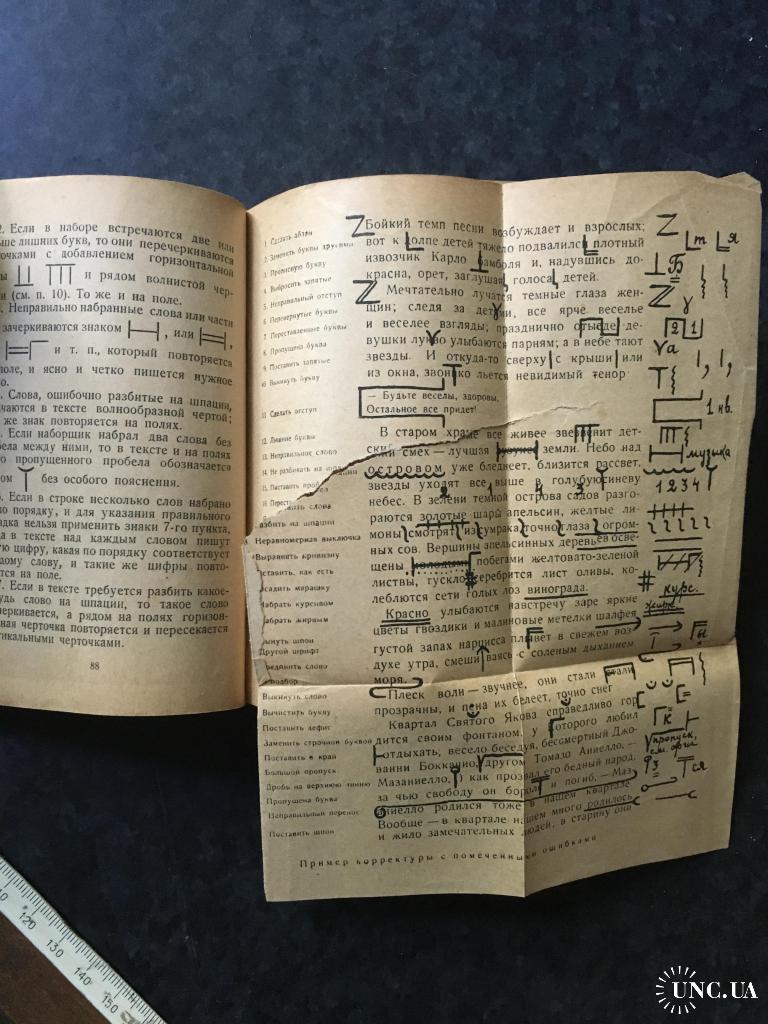 2. Если в наборе встречаются две или
ше лишних букв, то они перечеркиваются
точками с добавлением горизонтальной
ы и рядом волнистой чер-
и (см. п. 10). То же и на поле.
Неправильно набранные слова или части
зачеркиваются знаком , или ,
и т. п., который повторяется
поле, и ясно и четко пишется нужное
о.
Слова, ошибочно разбитые на шпации,
чаются в тексте волнообразной чертой;
же знак повторяется на полях.
Если наборщик набрал два слова без
бела между ними, то в тексте и на полях
о пропущенного пробела обозначается
ом без особого пояснения.
Если в строке несколько слов набрано
по порядку, и для указания правильного
дка нельзя применить знаки 7-го пункта,
да в тексте над каждым словом пишут
ую цифру, какая по порядку соответствует
дому слову, и такие же цифры повто-
тся на поле.
Если в тексте требуется разбить какое-
удь слово на шпации, то такое слово
черкивается, а рядом на полях горизон-
ная черточка повторяется и пересекается
тикальными черточками.
88
1. Сделать абзац
2. Заменить буквы другими
3. Прописную букву
4. Выбросить запятые
5. Неправильный отступ
6. Перевернутые буквы
7. Переставленные буквы
8. Пропущена буква
9. Поставить запятые
10. Выкинуть букву
11. Сделать отступ
12. Лишние буквы
13. Неправильное слово
14. Не разбивать на
15. Поставить
слова
азбить на шпации
Неравномерная выключка
Выравнять кривизну
ставить, как есть
садить марашку
Набрать курсивом
Набрать жирным
нуть шпон
Другой шрифт
единить слово
Выкинуть слово
Вычистить букву
Поставить дефис
Заменить строчной буквой
Поставить в край
Большой пропуск
Дробь на верхнюю линию
Пропущена буква
Неправильный перенос
Поставить шпон
Бойкий темп песни возбуждает и взрослых;
вот к толпе детей тяжело подвалился плотный
извозчик Карло Бамболя и, надувшись до-
красна, орет, заглушая голоса детей.
Мечтательно лучатся темные глаза жен-
щин; следя за детьми, все ярче веселье
и веселее взгляды; празднично де-
вушки улыбаются парням; а в небе тают
звезды. И откуда-то сверху с крыши или
из окна, звонко льется невидимый тенор
— Будьте веселы, здоровы,
Остальное все придет!
В старом храме все живее звенит дет-
ский смех — лучшая земли. Небо над
островом уже бледнеет, близится рассвет,
звезды уходят все выше в голубую синеву
небес. В зелени темной острова садов разго-
раются золотые шары апельсин, желтые ли-
моны смотрят из сумрака точно глаза огром-
ных сов. Вершины апельсинных деревьев осве-
щены побегами желтовато-зеленой
листвы, гускло серебрится лист оливы, ко-
леблются сети голых лоз винограда.
Красно улыбаются навстречу заре яркие
цветы гвоздики и малиновые метелки шалфея
густой запах нарцисса плывет в свежем воз
духе утра, смешиваясь с соленым дыханием
моря.
Плеск волн — звучнее, они стали
прозрачны, и пена их белеет, точно снег
Квартал Святого Якова справедливо гор
дится своим фонтаном, у которого любил
отдыхать, весело беседуя, бессмертный Джо-
ванни Боккачио, другом Томазо Аниелло, —
Мазаниелло, как прозвал его бедный народ,
за чью свободу он боролся и погиб, — Маз
аниелло родился тоже в нашем квартале
Вообще — в квартале нашем много родилось
и жило замечательных людей, в старину они
Пример корректуры с помеченными ошибками
т я
Б
2 1
а
1 кв.
музыка
1 2 3 4
курс.
жирн.
к
пропуск,
ся
120
130
140
150
UNC.UA